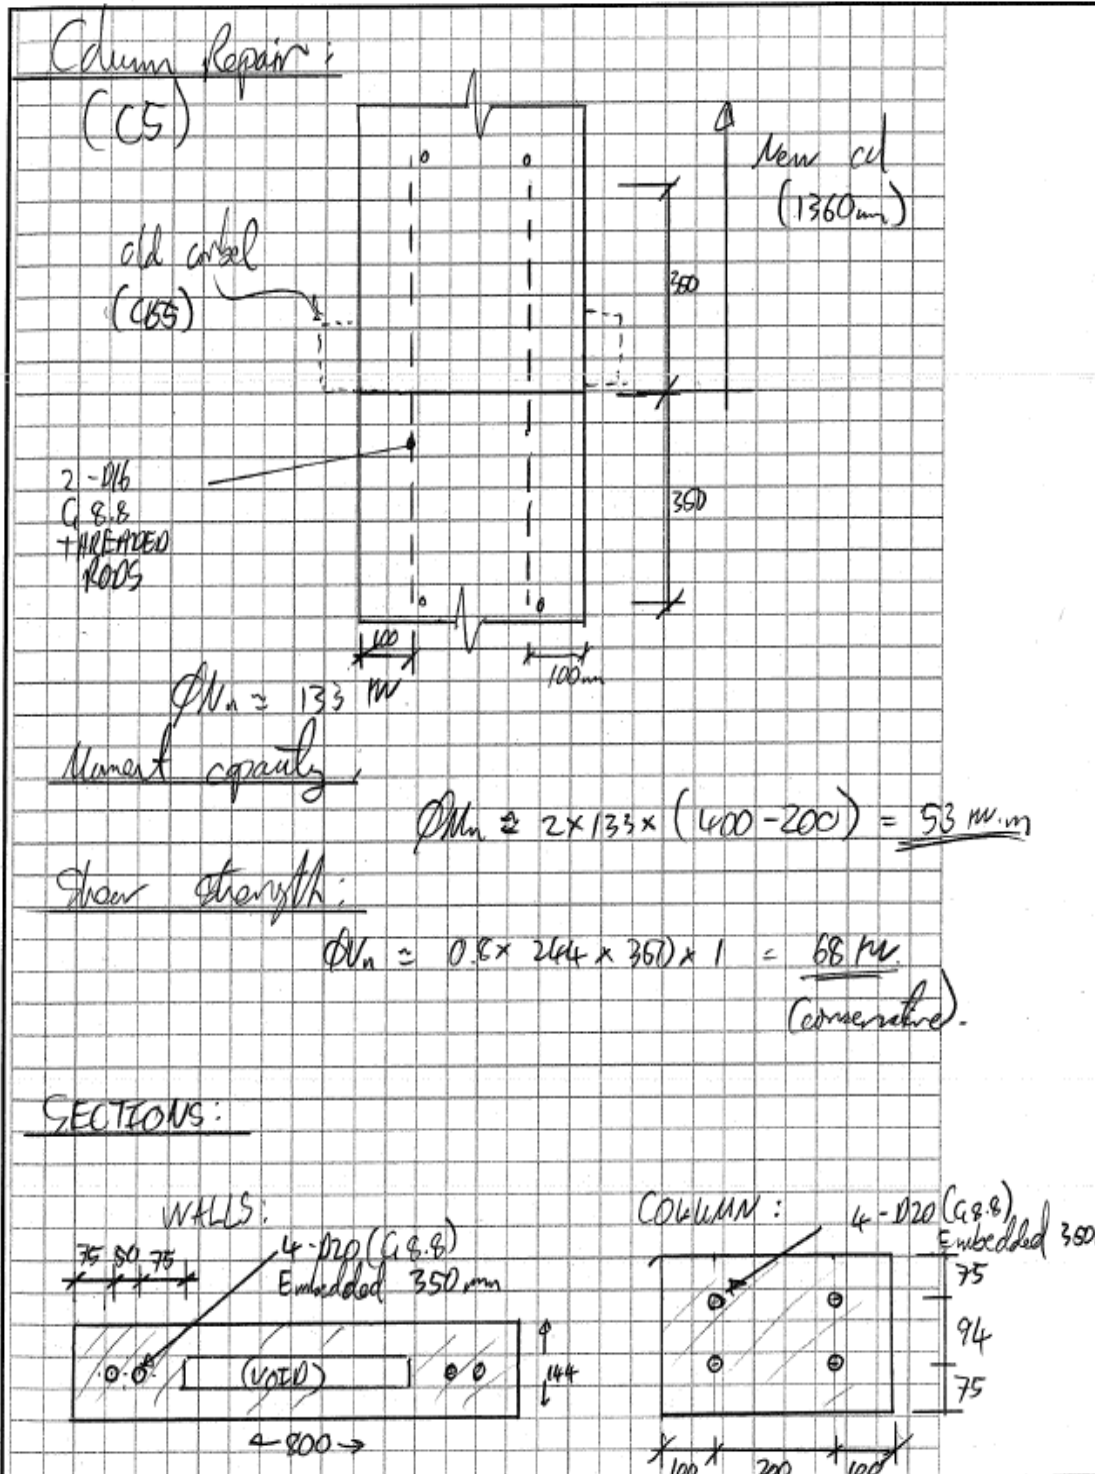 Column Repair :
(C5)
New col
(1360mm)
old corbel
(CB5)
350
350
2 - D16
G 8.8
THREADED
RODS
100
100mm
ØNn ≈ 133 kN
Moment capacity
ØMn ≈ 2 x 133 x (400 - 200) = 53 kN.m
Shear Strength :
ØVn ≈ 0.8 x 244 x 350 x 1 = 68 kN.
(conservative).
SECTIONS :
WALLS :
75 50 75
4 - D20 (G 8.8)
Embedded 350mm
(VOID)
144
800
COLUMN :
4 - D20 (G 8.8)
Embedded 350
75
94
75
100 200 100